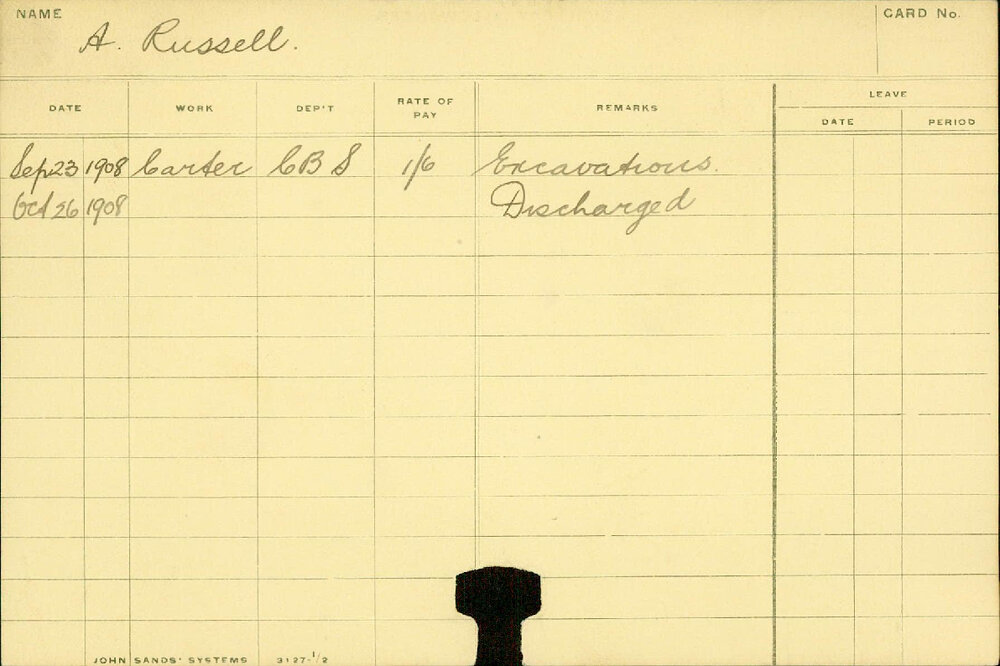 NAME A. Russell. CARD No.
DATE WORK DEP'T RATE OF PAY REMARKS LEAVE
DATE PERIOD
Sep 23 1908 Carter CBS 1/6 Excavations.
Oct 26 1908 Discharged
JOHN SANDS' SYSTEMS 3127-1/2